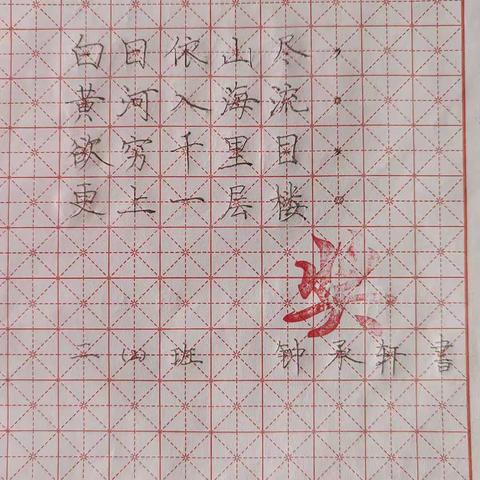 白日依山尽，
黄河入海流。
欲穷千里目，
更上一层楼。
奖
三（2）班 钟承轩書